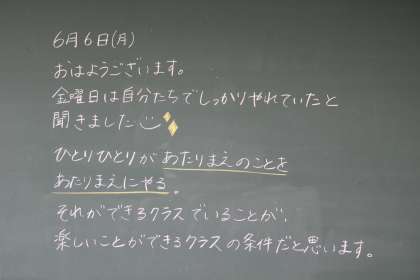 6月6日(月)
おはようございます。
金曜日は自分たちでしっかりやれていたと
聞きました
ひとりひとりがあたりまえのことを
あたりまえにやる。
それができるクラスでいることが、
楽しいことができるクラスの条件だと思います。